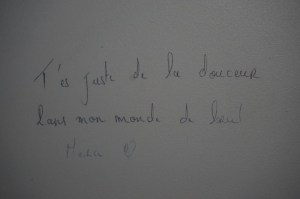 T'es juste de la douceur
dans mon monde de